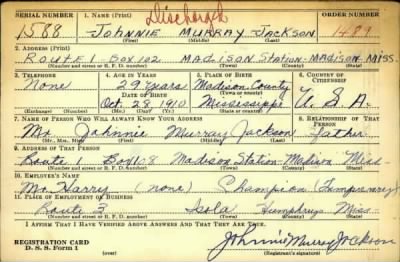 Discharged
SERIAL NUMBER 1. NAME (Print) ORDER NUMBER
1588 JOHNNIE MURRAY JACKSON 1489
(First) (Middle) (Last)
2. ADDRESS (Print)
ROUTE 1 BOX 102 MADISON STATION - MADISON MISS.
(Number and street or R. F. D. number) (Town) (County) (State)
3. TELEPHONE 4. AGE IN YEARS 5. PLACE OF BIRTH 6. COUNTRY OF CITIZENSHIP
None 29 years Madison County
DATE OF BIRTH (Town or county)
Oct. 28 1910 Mississippi U. S. A.
(Exchange) (Number) (Mo.) (Day) (Yr.) (State or country)
7. NAME OF PERSON WHO WILL ALWAYS KNOW YOUR ADDRESS 8. RELATIONSHIP OF THAT PERSON
Mr. Johnnie Murray Jackson Father
(Mr., Mrs., Miss) (First) (Middle) (Last)
9. ADDRESS OF THAT PERSON
Route 1 Box 108 Madison Station - Madison Miss
(Number and street or R. F. D. number) (Town) (County) (State)
10. EMPLOYER'S NAME
Mr. Harry (none) Champion (Temporary)
11. PLACE OF EMPLOYMENT OR BUSINESS
Route 3 Isola Humphrys Miss
(Number and street or R. F. D. number) (Town) (County) (State)
I AFFIRM THAT I HAVE VERIFIED ABOVE ANSWERS AND THAT THEY ARE TRUE.
REGISTRATION CARD
D. S. S. Form 1
Johnnie Murray Jackson
(Registrant's signature)